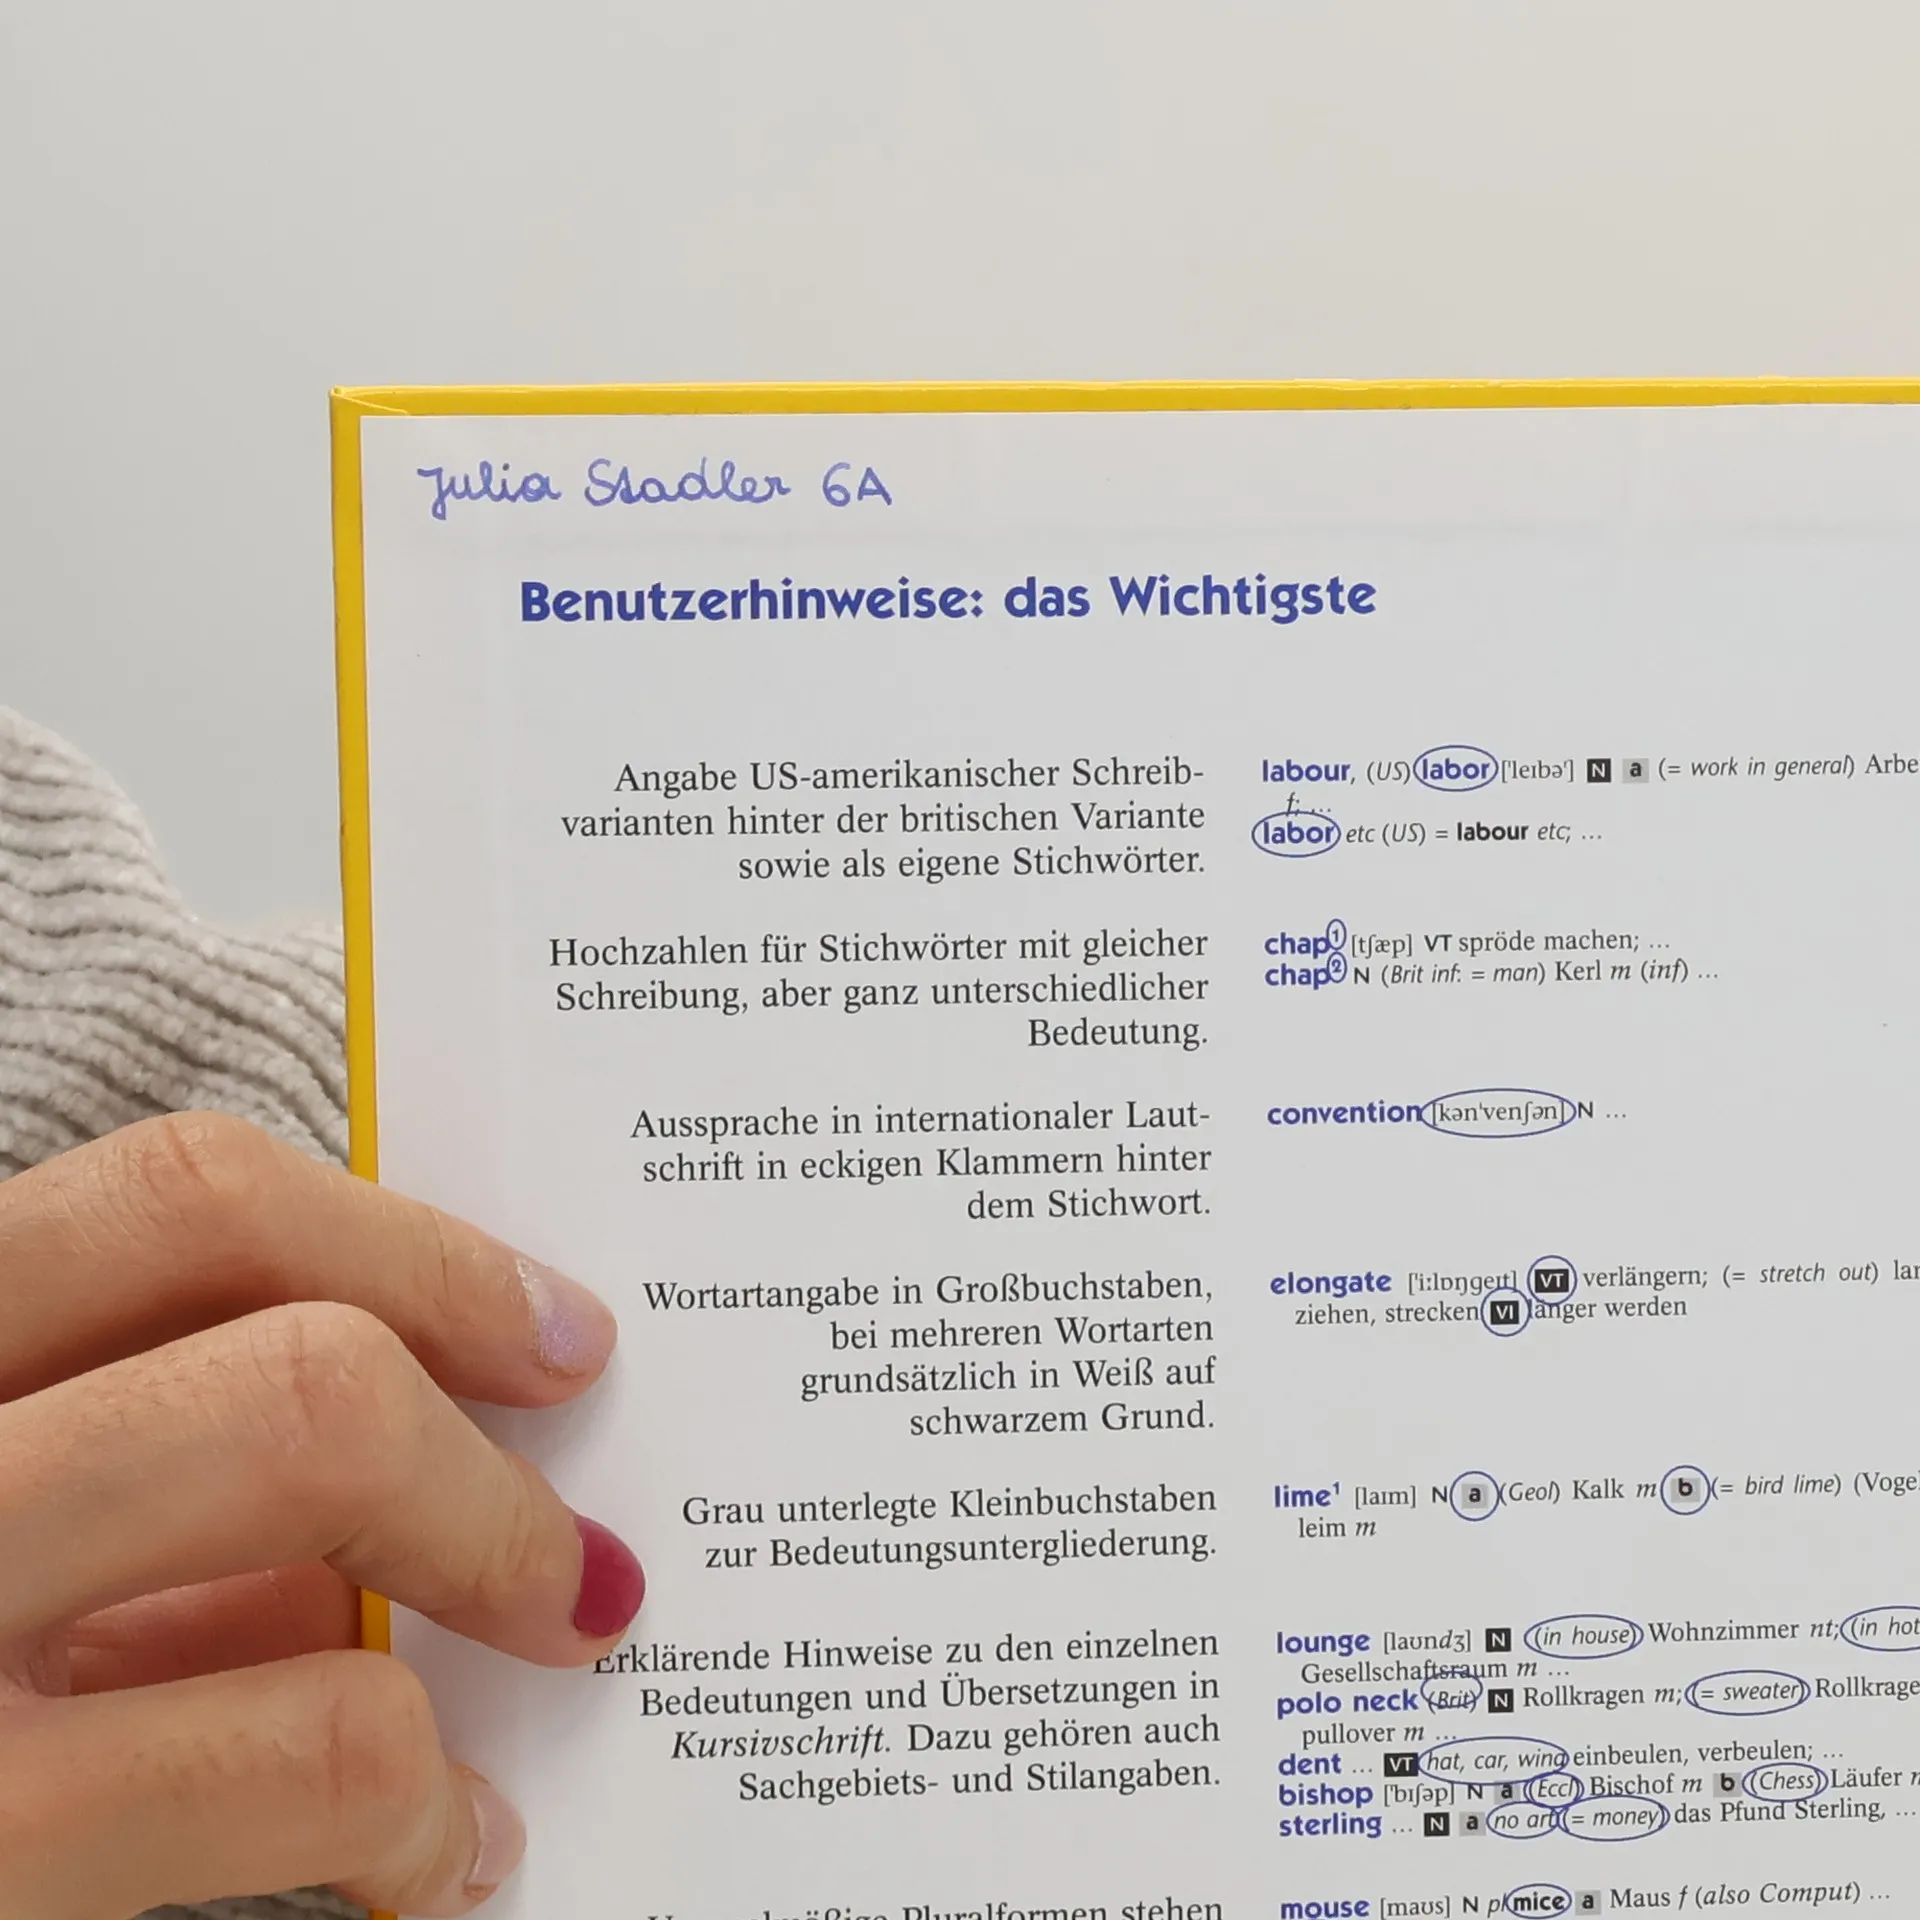 Julia Stadler 6A
Benutzerhinweise: das Wichtigste
Angabe US-amerikanischer Schreib-
varianten hinter der britischen Variante
sowie als eigene Stichwörter.
labour, (US) labor ['leɪbəʳ] N a (= work in general) Arbe
f; …
labor etc (US) = labour etc; …
Hochzahlen für Stichwörter mit gleicher
Schreibung, aber ganz unterschiedlicher
Bedeutung.
chap¹ [tʃæp] VT spröde machen; …
chap² N (Brit inf: = man) Kerl m (inf) …
Aussprache in internationaler Laut-
schrift in eckigen Klammern hinter
dem Stichwort.
convention [kən'venʃən] N …
Wortartangabe in Großbuchstaben,
bei mehreren Wortarten
grundsätzlich in Weiß auf
schwarzem Grund.
elongate ['i:lɒŋgeɪt] VT verlängern; (= stretch out) lan
ziehen, strecken VI länger werden
Grau unterlegte Kleinbuchstaben
zur Bedeutungsuntergliederung.
lime¹ [laɪm] N a (Geol) Kalk m b (= bird lime) (Vogel
leim m
Erklärende Hinweise zu den einzelnen
Bedeutungen und Übersetzungen in
Kursivschrift. Dazu gehören auch
Sachgebiets- und Stilangaben.
lounge [laʊndʒ] N (in house) Wohnzimmer nt; (in hot
Gesellschaftsraum m …
polo neck (Brit) N Rollkragen m; (= sweater) Rollkrage
pullover m …
dent … VT hat, car, wing einbeulen, verbeulen; …
bishop ['bɪʃəp] N a (Eccl) Bischof m b (Chess) Läufer
sterling … N a no art (= money) das Pfund Sterling, …
Pluralformen stehen
mouse [maʊs] N pl mice a Maus f (also Comput) …